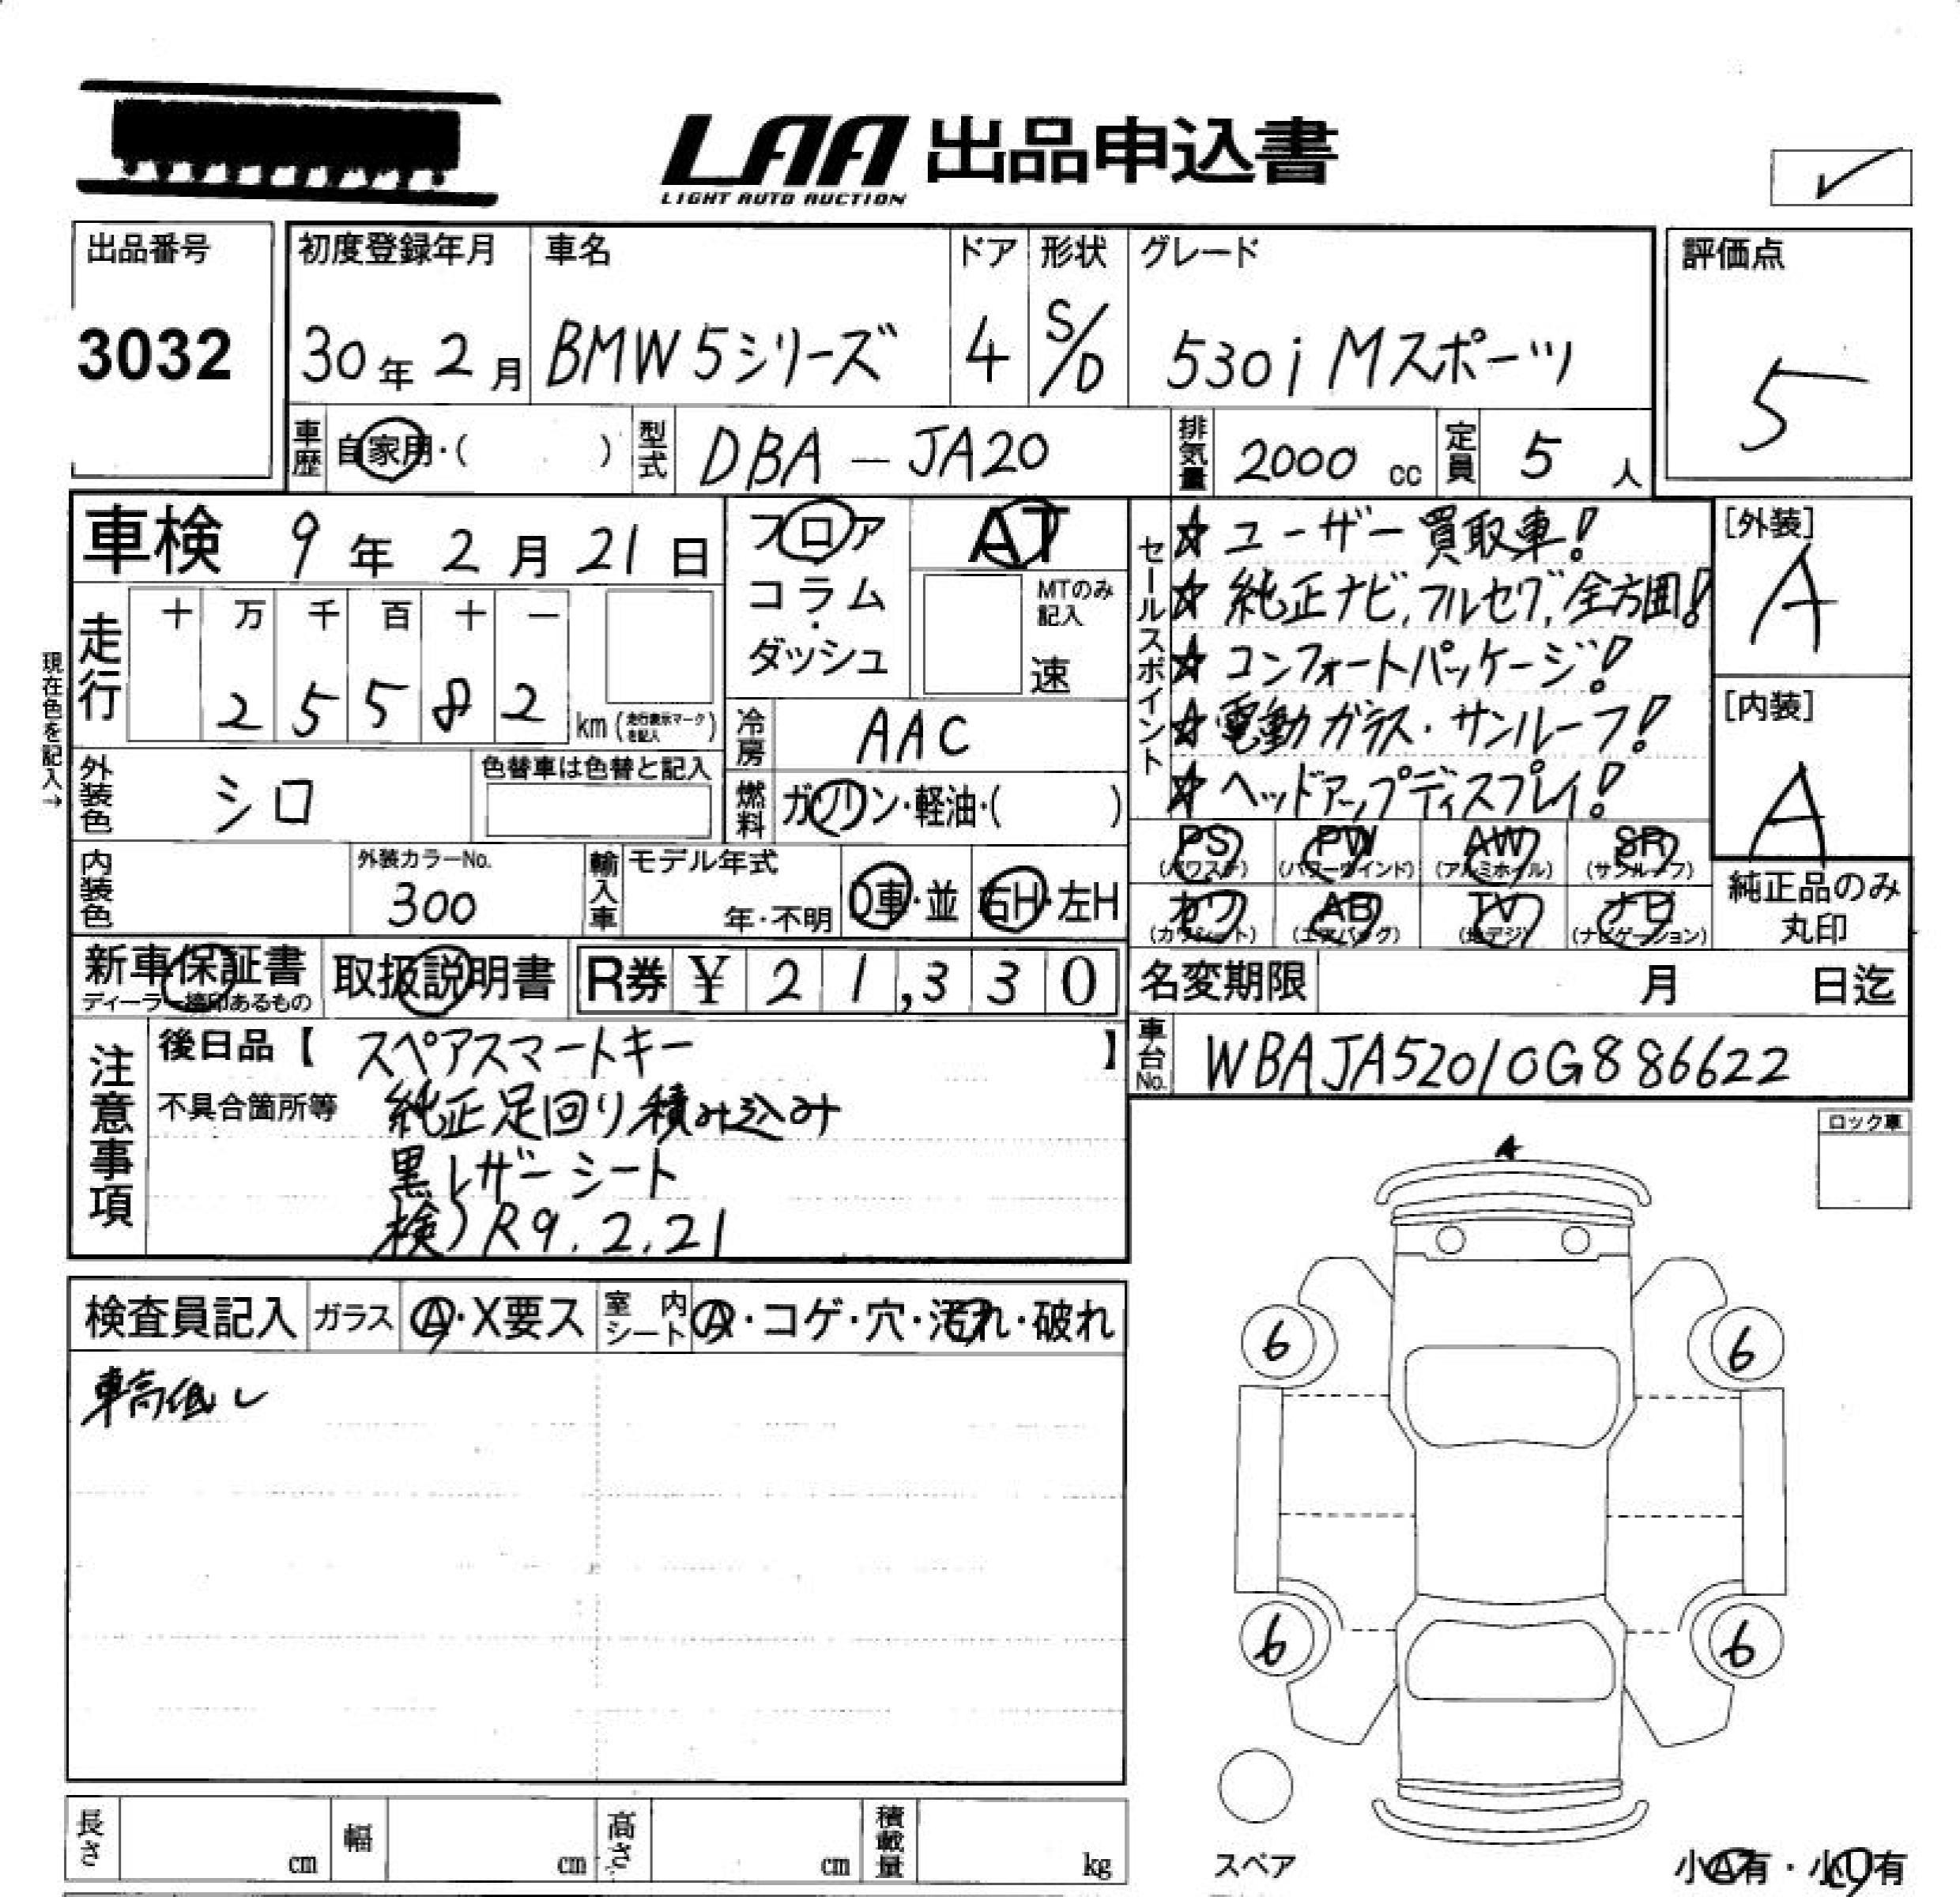 LAA 出品申込書
LIGHT AUTO AUCTION
出品番号
3032
初度登録年月
30年2月
車名
BMW 5シリーズ
ドア
4
形状
S/D
グレード
530i Mスポーツ
評価点
5
車歴 自家用・( )
型式 DBA-JA20
排気量 2000 cc
定員 5 人
車検 9年2月21日
走行 十 万 千 百 十 一
2 5 5 8 2 km (走行表示マークを記入)
現在色を記入→
外装色 シロ
色替車は色替と記入
内装色
外装カラーNo.
300
フロア
コラム
・
ダッシュ
AT
MTのみ記入
速
冷房 AAC
燃料 ガソリン・軽油・( )
輸入車 モデル年式
年・不明
D車・並 右H・左H
セールスポイント
☆ ユーザー買取車!
☆ 純正ナビ,フルセグ,全方囲!
☆ コンフォートパッケージ!
☆ 電動ガラス・サンルーフ!
☆ ヘッドアップディスプレイ!
[外装]
A
[内装]
A
PS (パワステ) PW (パワーウインド) AW (アルミホイル) SR (サンルーフ)
カワ (カワシート) AB (エアバッグ) TV (地デジ) ナビ (ナビゲーション)
純正品のみ
丸印
新車保証書
ディーラー捺印あるもの
取扱説明書
R券 ¥ 21,330
名変期限 月 日迄
車台No. WBAJA52010G886622
注意事項
後日品【 スペアスマートキー 】
不具合箇所等 純正足回り積み込み
黒レザーシート
検)R9.2.21
ロック車
検査員記入 ガラス A・X要ス 室内シート A・コゲ・穴・汚れ・破れ
車高低し
6 6
6 6
スペア
長さ cm 幅 cm 高さ cm 積載量 kg
小A有・小U有